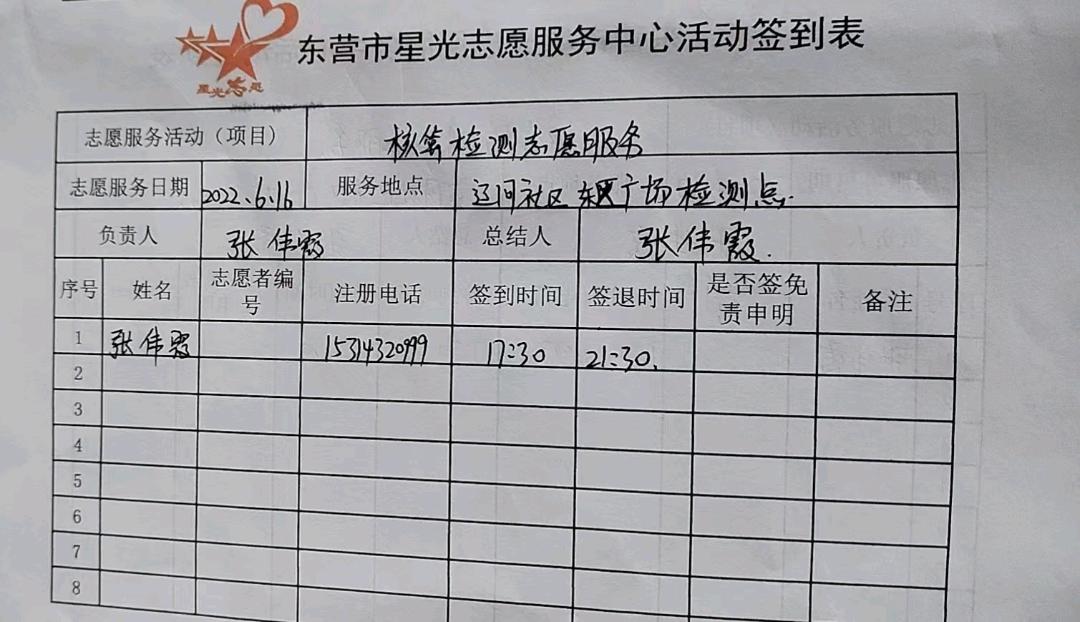 星光志愿
东营市星光志愿服务中心活动签到表
志愿服务活动（项目） 核算检测志愿服务
志愿服务日期 2022.6.16 服务地点 辽河社区东区广场检测点.
负责人 张伟霞 总结人 张伟霞.
序号 姓名 志愿者编号 注册电话 签到时间 签退时间 是否签免责申明 备注
1 张伟霞 15314320999 17:30 21:30.
2
3
4
5
6
7
8